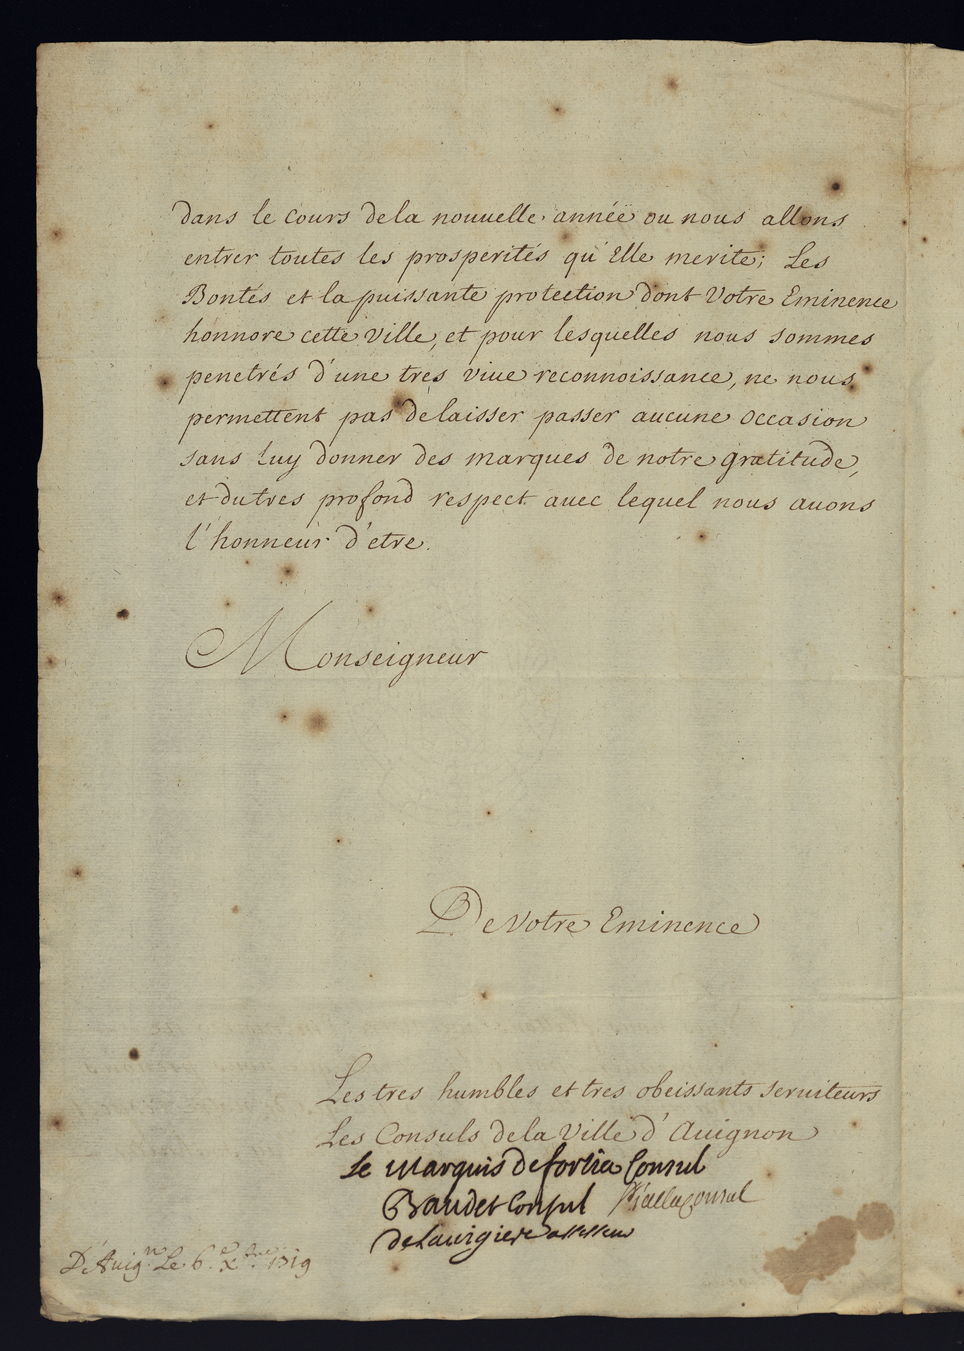 dans le cours dela nouuelle année ou nous allons
entrer toutes les prosperités qu'Elle merite; Les
Bontés et la puissante protection dont Votre Eminence
honnore cette Ville, et pour lesquelles nous sommes
penetrés d'une tres viue reconnoissance, ne nous
permettent pas de laisser passer aucune occasion
sans luy donner des marques de notre gratitude,
et du tres profond respect auec lequel nous auons
l'honneur d'etre.
Monseigneur
De Votre Eminence
Les tres humbles et tres obeissants seruiteurs
Les Consuls dela Ville d'Auignon
Le Marquis de fortia Consul
Baudet Consul Pialla Consul
De Lauigiere assesseur
D'Auig.n Le 6.e